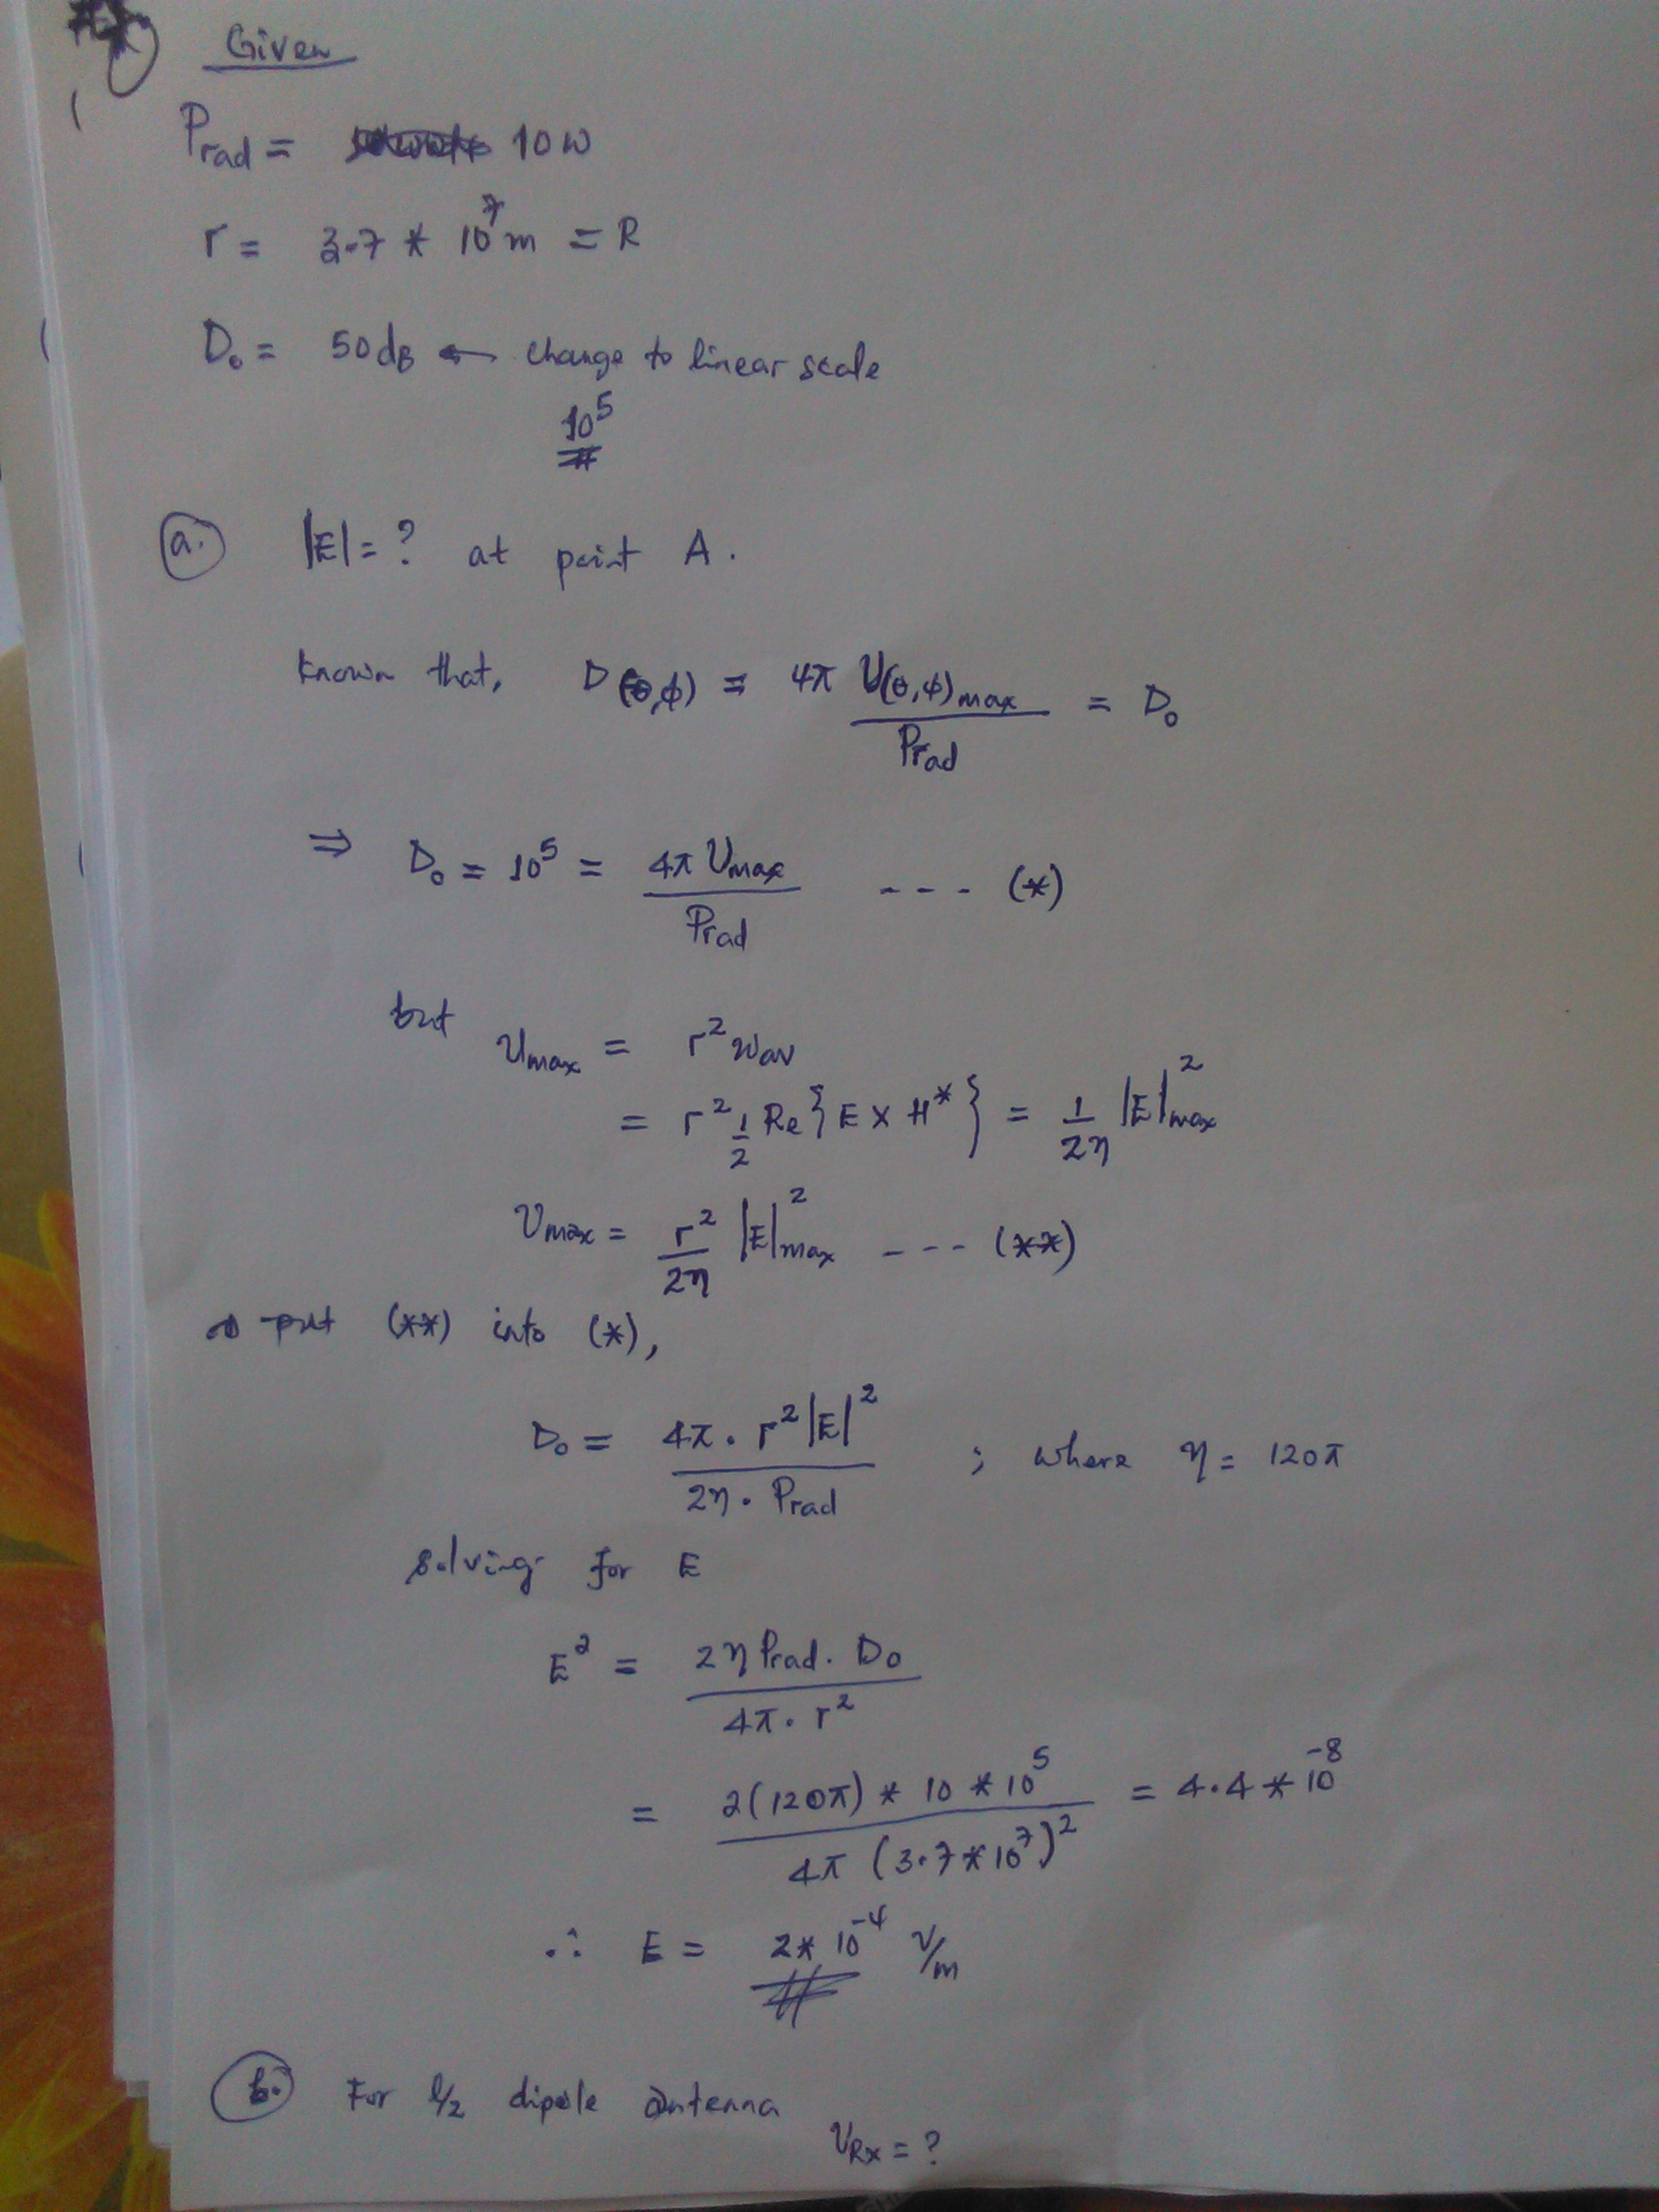 Given
Prad = 10W
r = 3.7 * 10^7 m = R
D₀ = 50dB ← change to linear scale
10^5
a. |E| = ? at point A.
known that, D(θ,φ) = 4π U(θ,φ)max / Prad = D₀
⇒ D₀ = 10^5 = 4π Umax / Prad --- (*)
but Umax = r² Wav
= r² 1/2 Re{E × H*} = 1/2η |E|²max
Umax = r²/2η |E|²max --- (**)
put (**) into (*),
D₀ = 4π · r²|E|² / 2η · Prad ; where η = 120π
solving for E
E² = 2η Prad · D₀ / 4π · r²
= 2(120π) * 10 * 10^5 / 4π (3.7*10^7)² = 4.4 * 10^-8
∴ E = 2 * 10^-4 V/m
b. For l/2 dipole antenna
VRx = ?